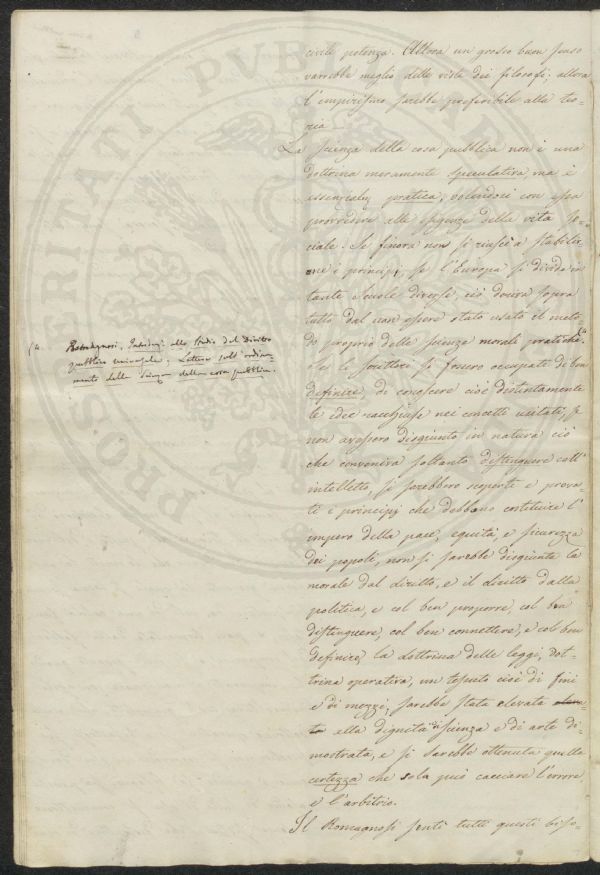 civile potenza. Allora un grosso buon senso
varrebbe meglio delle viste dei filosofi; allora
l'empirismo sarebbe preferibile alla teo-
ria.
La scienza della cosa pubblica non è una
dottrina meramente speculativa, ma è
essenzialm. pratica, volendosi con essa
provvedere alle esigenze della vita so-
ciale. Se finora non si riuscì a stabilir-
ne i principj, se l'Europa si divide in
tante scuole diverse, ciò dovrà sopra
tutto dal non essere stato usato il meto-
do proprio delle scienze morali pratiche.
Se li scrittori si fossero occupati di ben
definire, di conoscere cioè distintamente
le idee racchiuse nei concetti usitati, se
non avessero disgiunto in natura ciò
che conveniva soltanto distinguere coll'
intelletto, si sarebbero scoperti e prova-
ti i principj che debbano costituire l'
impero della pace, equità, e sicurezza
dei popoli, non si sarebbe disgiunta la
morale dal diritto, e il diritto dalla
politica, e col ben proporre, col ben
distinguere, col ben connettere, e col ben
definire, la dottrina delle leggi, dot-
trina operativa, un tessuto cioè di fini
e di mezzi, sarebbe stata elevata
alla dignità di scienza e di arte di-
mostrata, e si sarebbe ottenuta quella
certezza che sola può cacciare l'errore
e l'arbitrio.
Il Romagnosi sentì tutti questi biso-
(a Romagnosi. Introduz. allo studio del Diritto
pubblico universale. Lettera sull'ordina-
mento della Scienza della cosa pubblica.
PROSPERITATI PVBLICAE